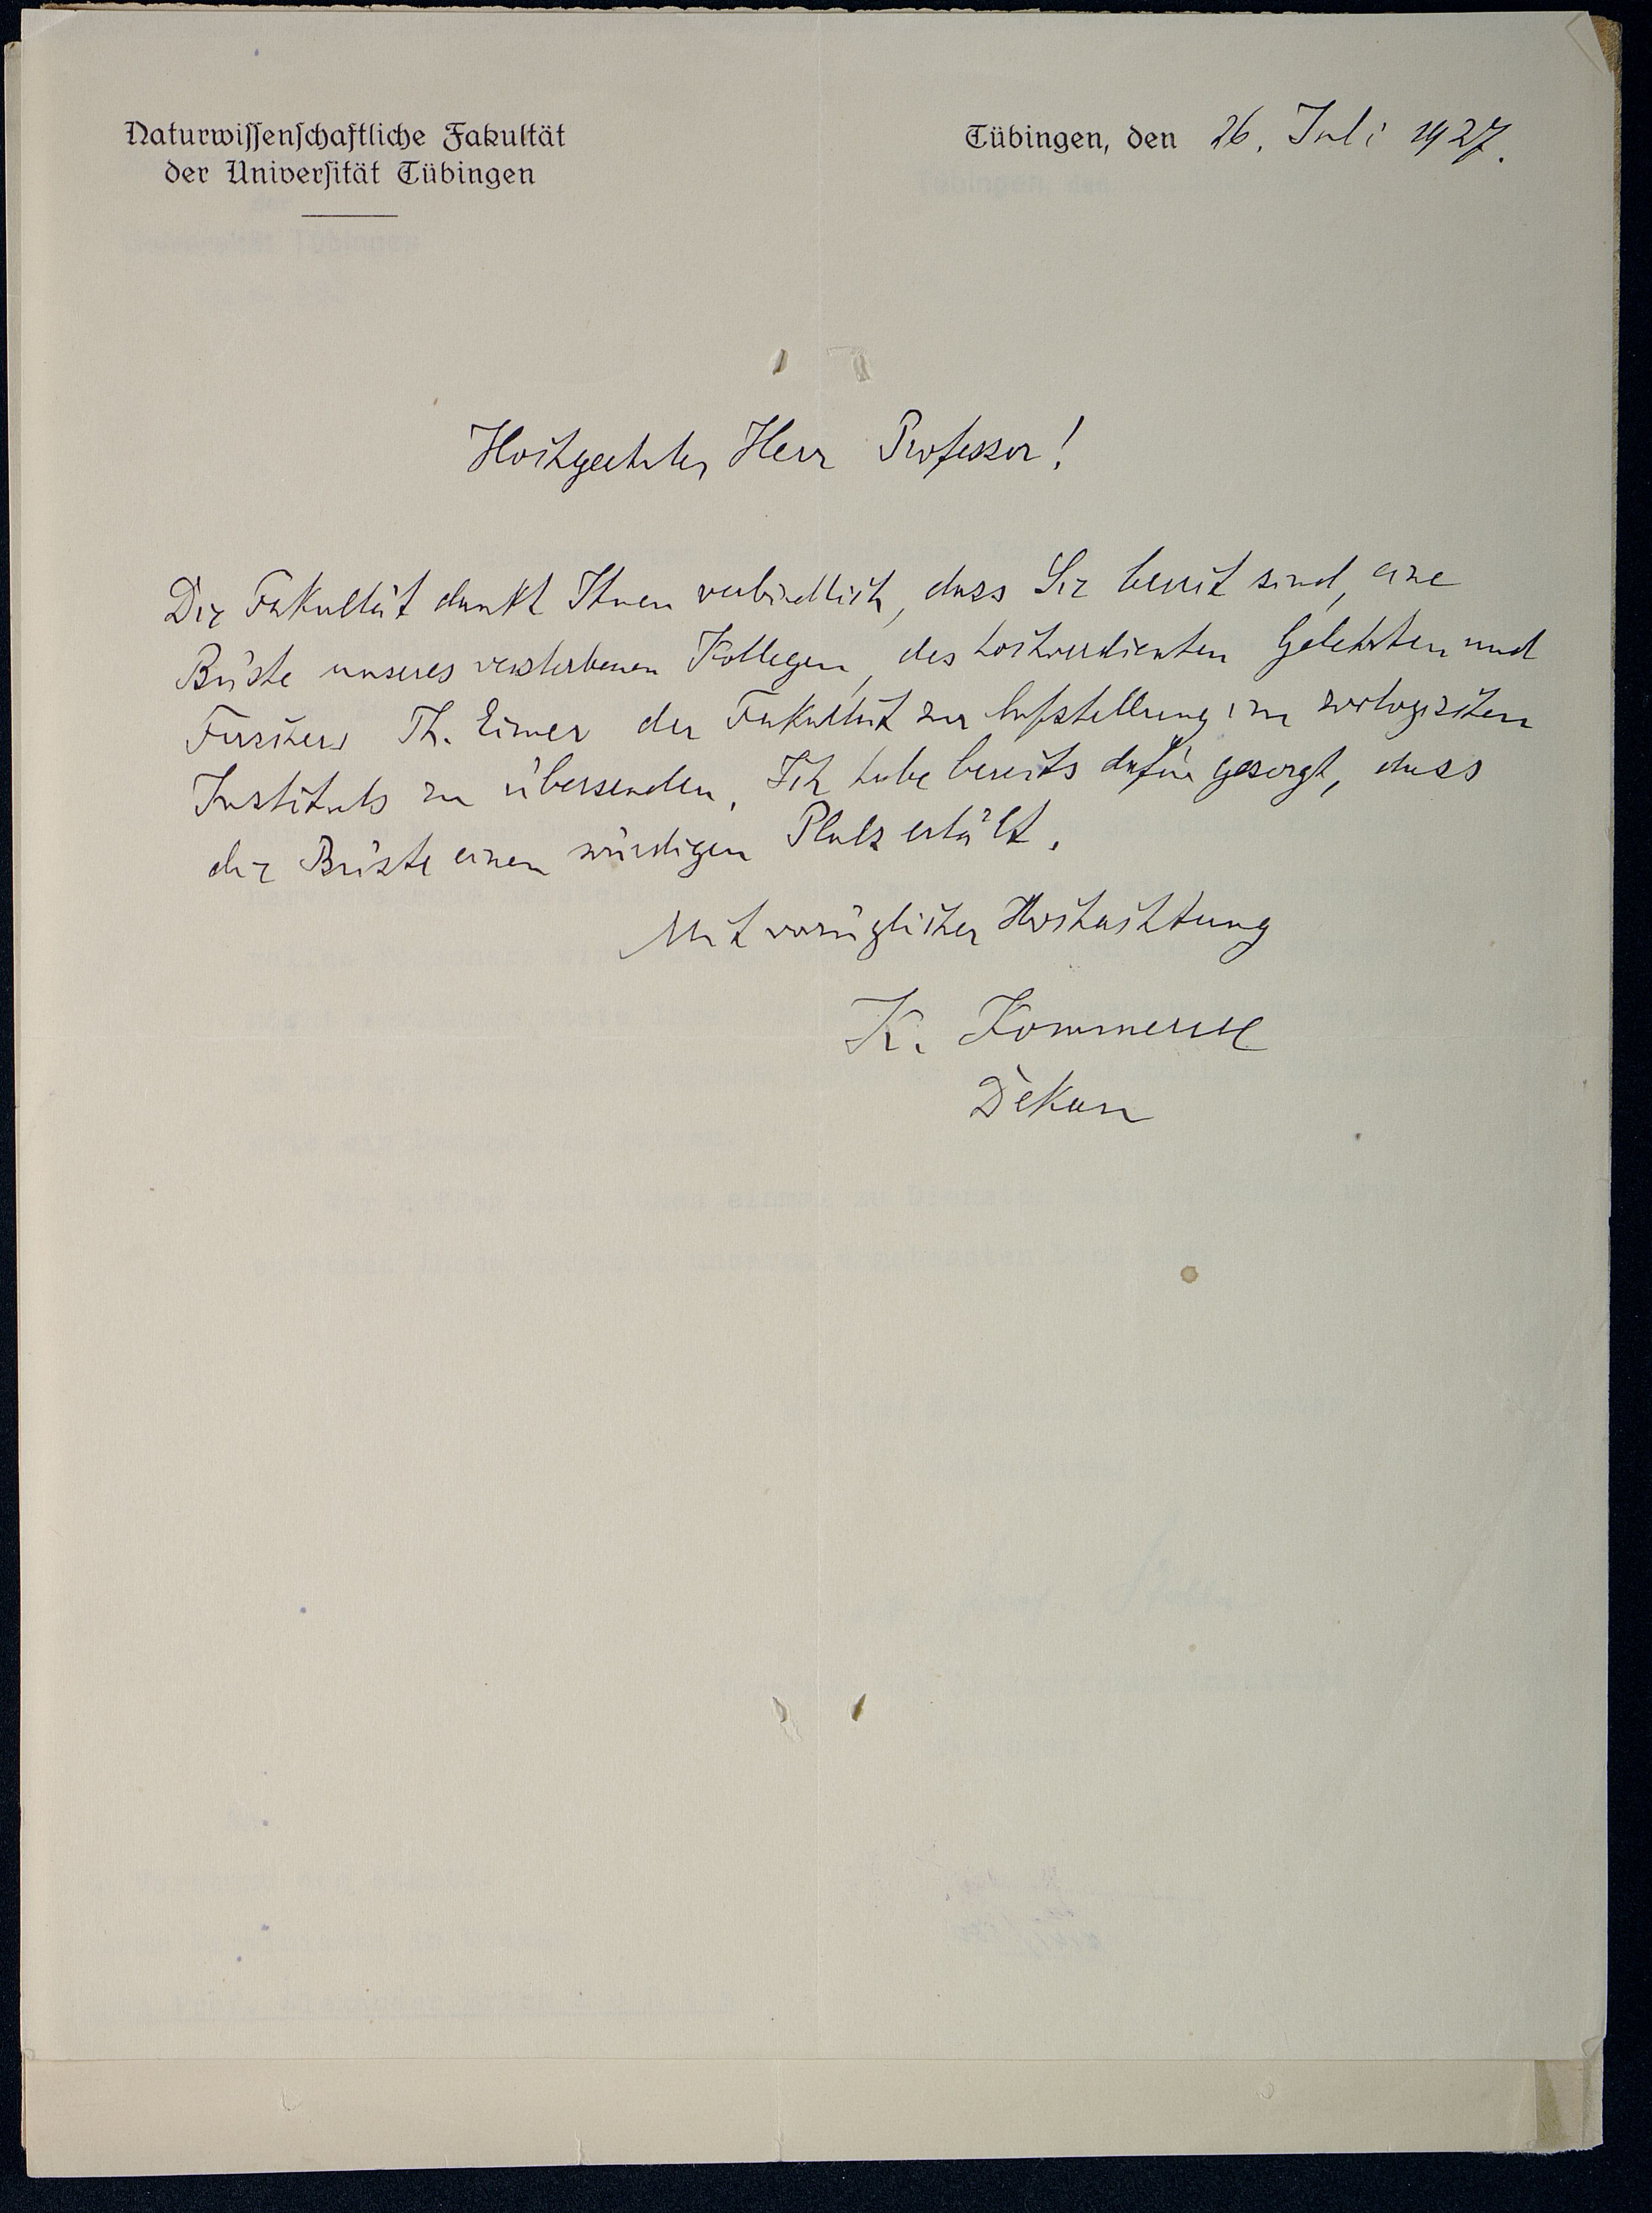 Naturwissenschaftliche Fakultät
der Universität Tübingen
Tübingen, den 26. Juli 1927.
Hochgeehrter Herr Professor!
Die Fakultät dankt Ihnen verbindlich, dass Sie bereit sind, eine
Büste unseres verstorbenen Kollegen, des hochverdienten Gelehrten und
Forschers Th. Eimer der Fakultät zur Aufstellung im zoologischen
Instituts zu übersenden. Ich habe bereits dafür gesorgt, dass
die Büste einen würdigen Platz erhält.
Mit vorzüglicher Hochachtung
K. Kommerell
Dekan